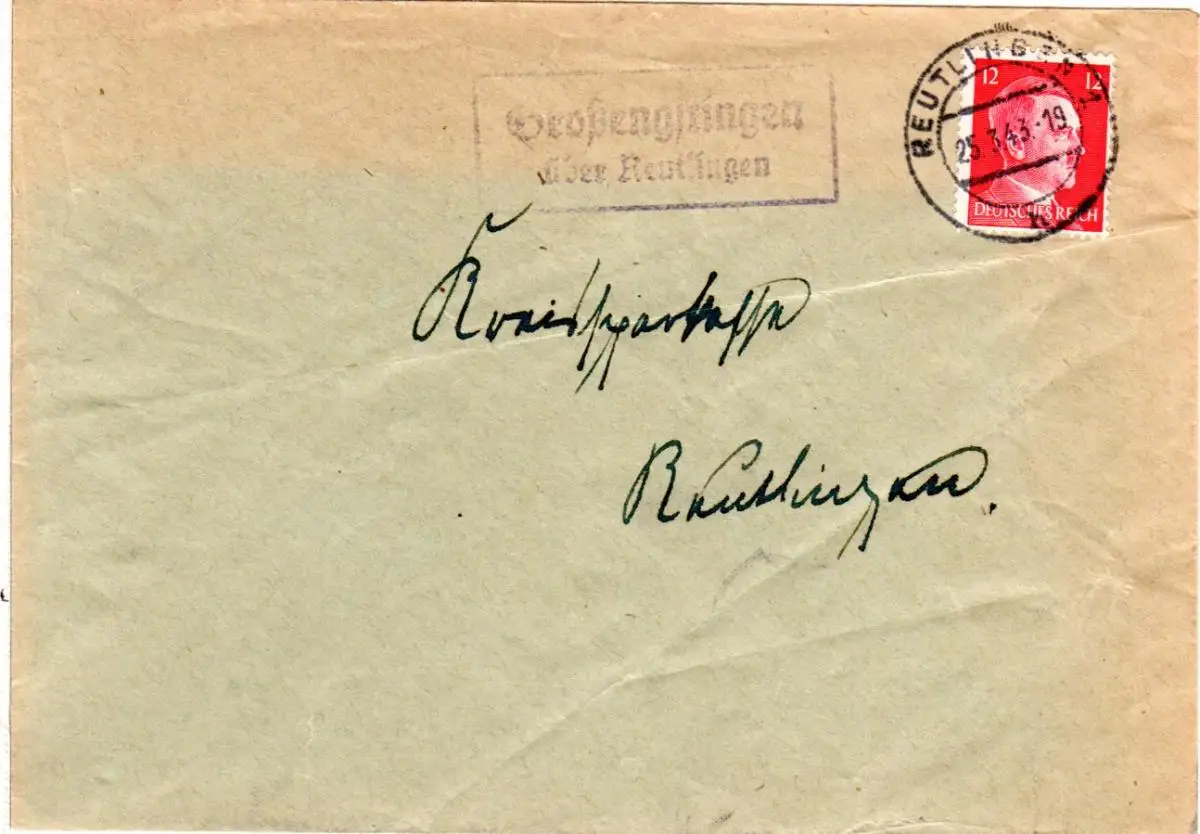 Großengstingen
über Reutlingen
REUTLINGEN 1
25.3.43.-19
12 12
DEUTSCHES REICH
Kreissparkasse
Reutlingen.